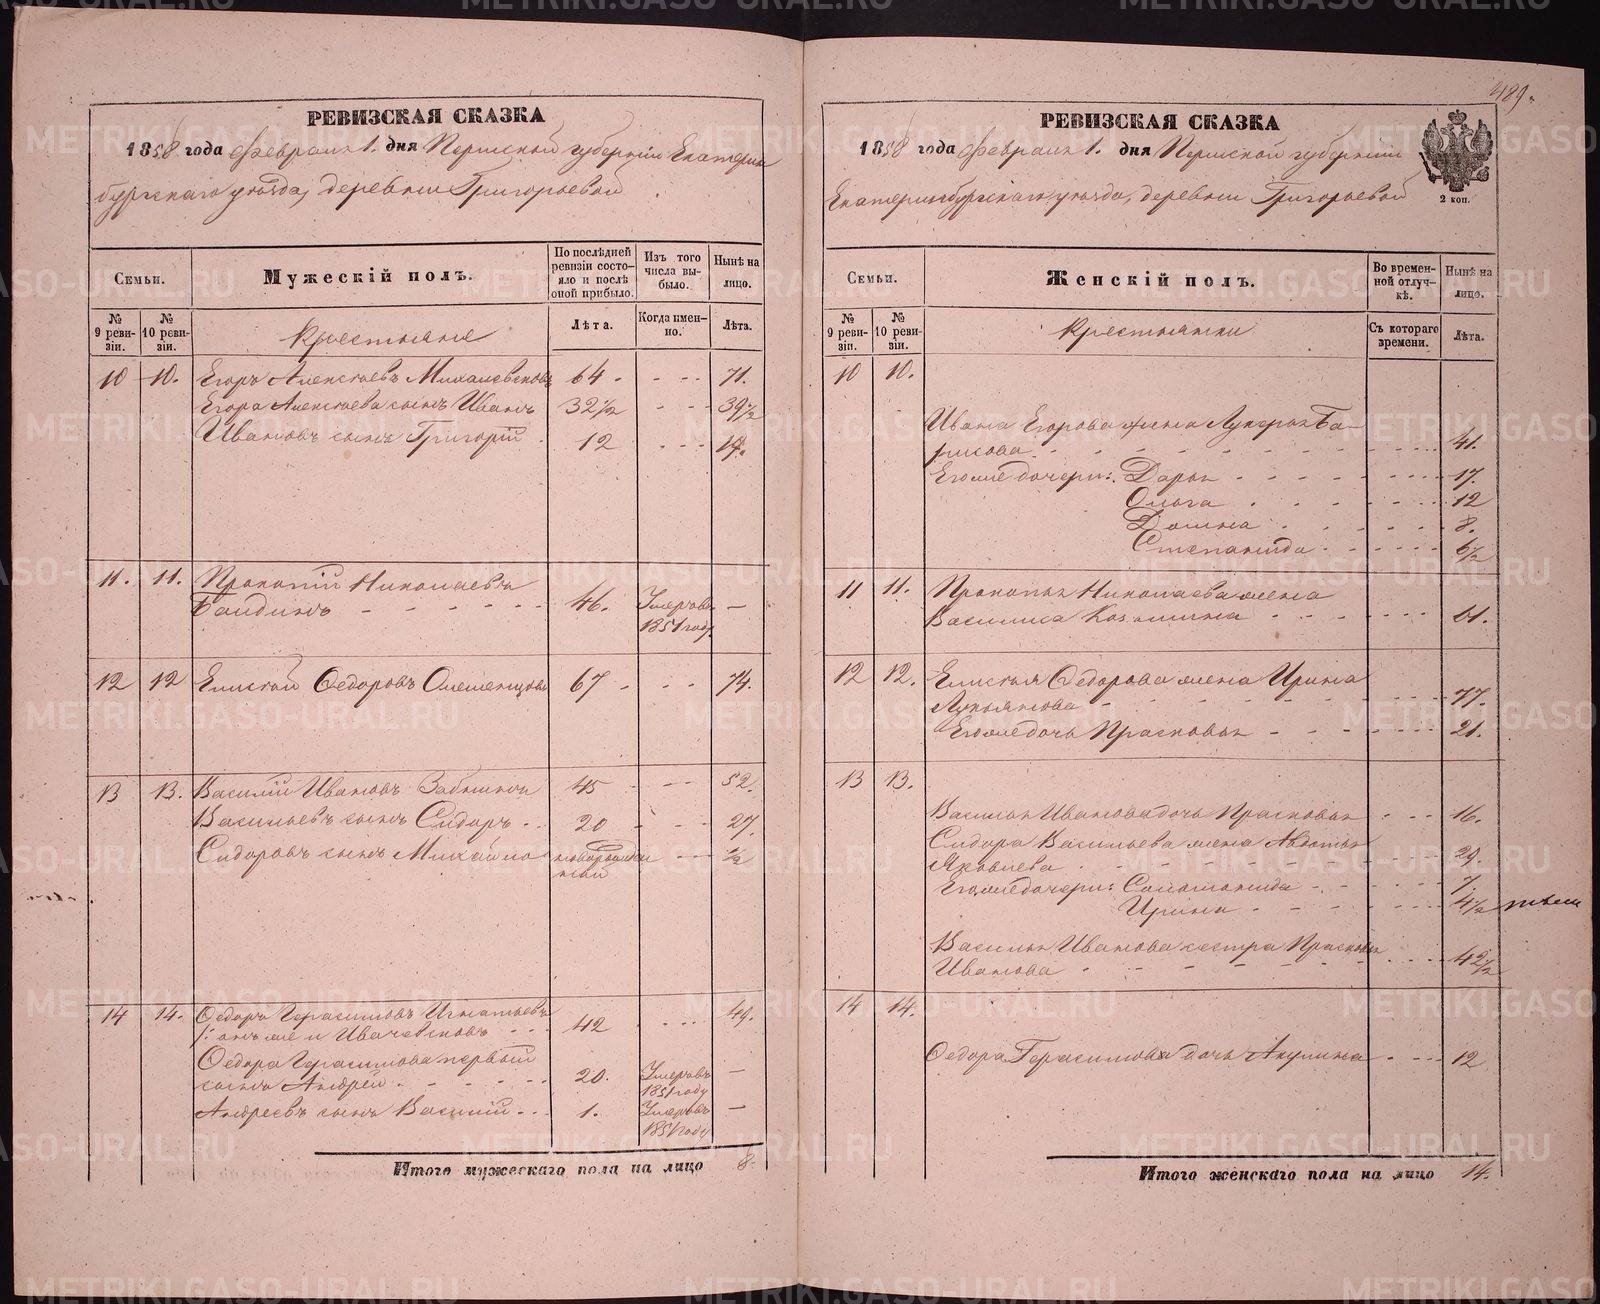 РЕВИЗСКАЯ СКАЗКА
1858 года Февраля 1. дня Пермской губернiи Екатерин
бургскаго уѣзда, деревни Григорьевой
Семьи.
Мужескiй полъ.
По послѣдней
ревизiи состо-
яло и послѣ
оной прибыло.
Изъ того
числа вы-
было.
Нынѣ на
лицо.
№
9 реви-
зiи.
№
10 реви-
зiи.
Крестьяне
Лѣта.
Когда имен-
но.
Лѣта.
10 10. Егоръ Алексѣевъ 64 - - - 71.
Егора Алексѣева сынъ Иванъ 32½ - - - 39½
Ивановъ сынъ Григорiй 12 - - - 19.
11. 11. Прокопiй Николаевъ
- - - - - - 46. Умеръ въ —
1851 году
12 12 Елисѣй Ѳедоровъ 67 - - - 74.
13 13. Василiй Ивановъ 45 - - - 52.
Васильевъ сынъ Сидоръ - - 20 - - - 27.
Сидоровъ сынъ Михайло новорожден - - - ½
ный
14 14. Ѳедоръ Герасимовъ Игнатьевъ
онъ же и 42 - - - 49.
Ѳедора Герасимова первый
сынъ Андрей - - - - - 20. Умеръ въ —
1851 году
Андреевъ сынъ Василiй - - - 1. Умеръ въ —
1851 году
Итого мужескаго пола на лицо 8.
489.
РЕВИЗСКАЯ СКАЗКА
1858 года Февраля 1. дня Пермской губернiи
Екатеринбургскаго уѣзда, деревни Григорьевой
2 коп.
Семьи.
Женскiй полъ.
Во времен-
ной отлуч-
кѣ.
Нынѣ на
лицо.
№
9 реви-
зiи.
№
10 реви-
зiи.
Крестьянки
Съ котораго
времени.
Лѣта.
10 10.
Ивана Егорова жена Лукерья Ба-
рисова - - - - - - 41.
Его же дочери: Дарья - - - - 17.
Ольга - - - - 12
Домна - - - - 8.
Степанида - - - - 6½
11 11. Прокопья Николаева жена
Василиса Козьмина - - - - 61.
12 12. Елисѣя Ѳедорова жена Ирина
Лукьянова - - - - - 77.
Его же дочь Прасковья - - - - 21.
13 13.
Василья Иванова дочь Прасковья - - - 16.
Сидора Васильева жена Авдотья
Яковлева - - - - - - 29.
Его же дочери: Соломонида - - - - 7.
Ирина - - - - 4½
Василья Иванова сестра Прасковья
Иванова - - - - - 42½
14 14.
Ѳедора Герасимова дочь Акулина - - - - 12
Итого женскаго пола на лицо 14.
METRIKI.GASO-URAL.RU